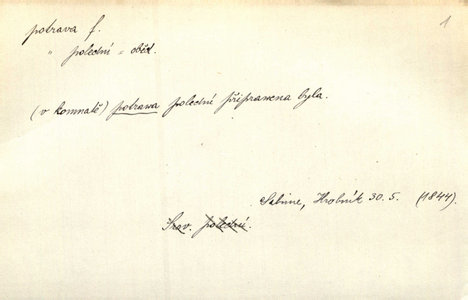 1
potrava f.
" polední = oběd.
(v komnatě) potrawa polední připrawena byla.
Sabina, Hrobník 30. 5. (1844).
Srov. polední.